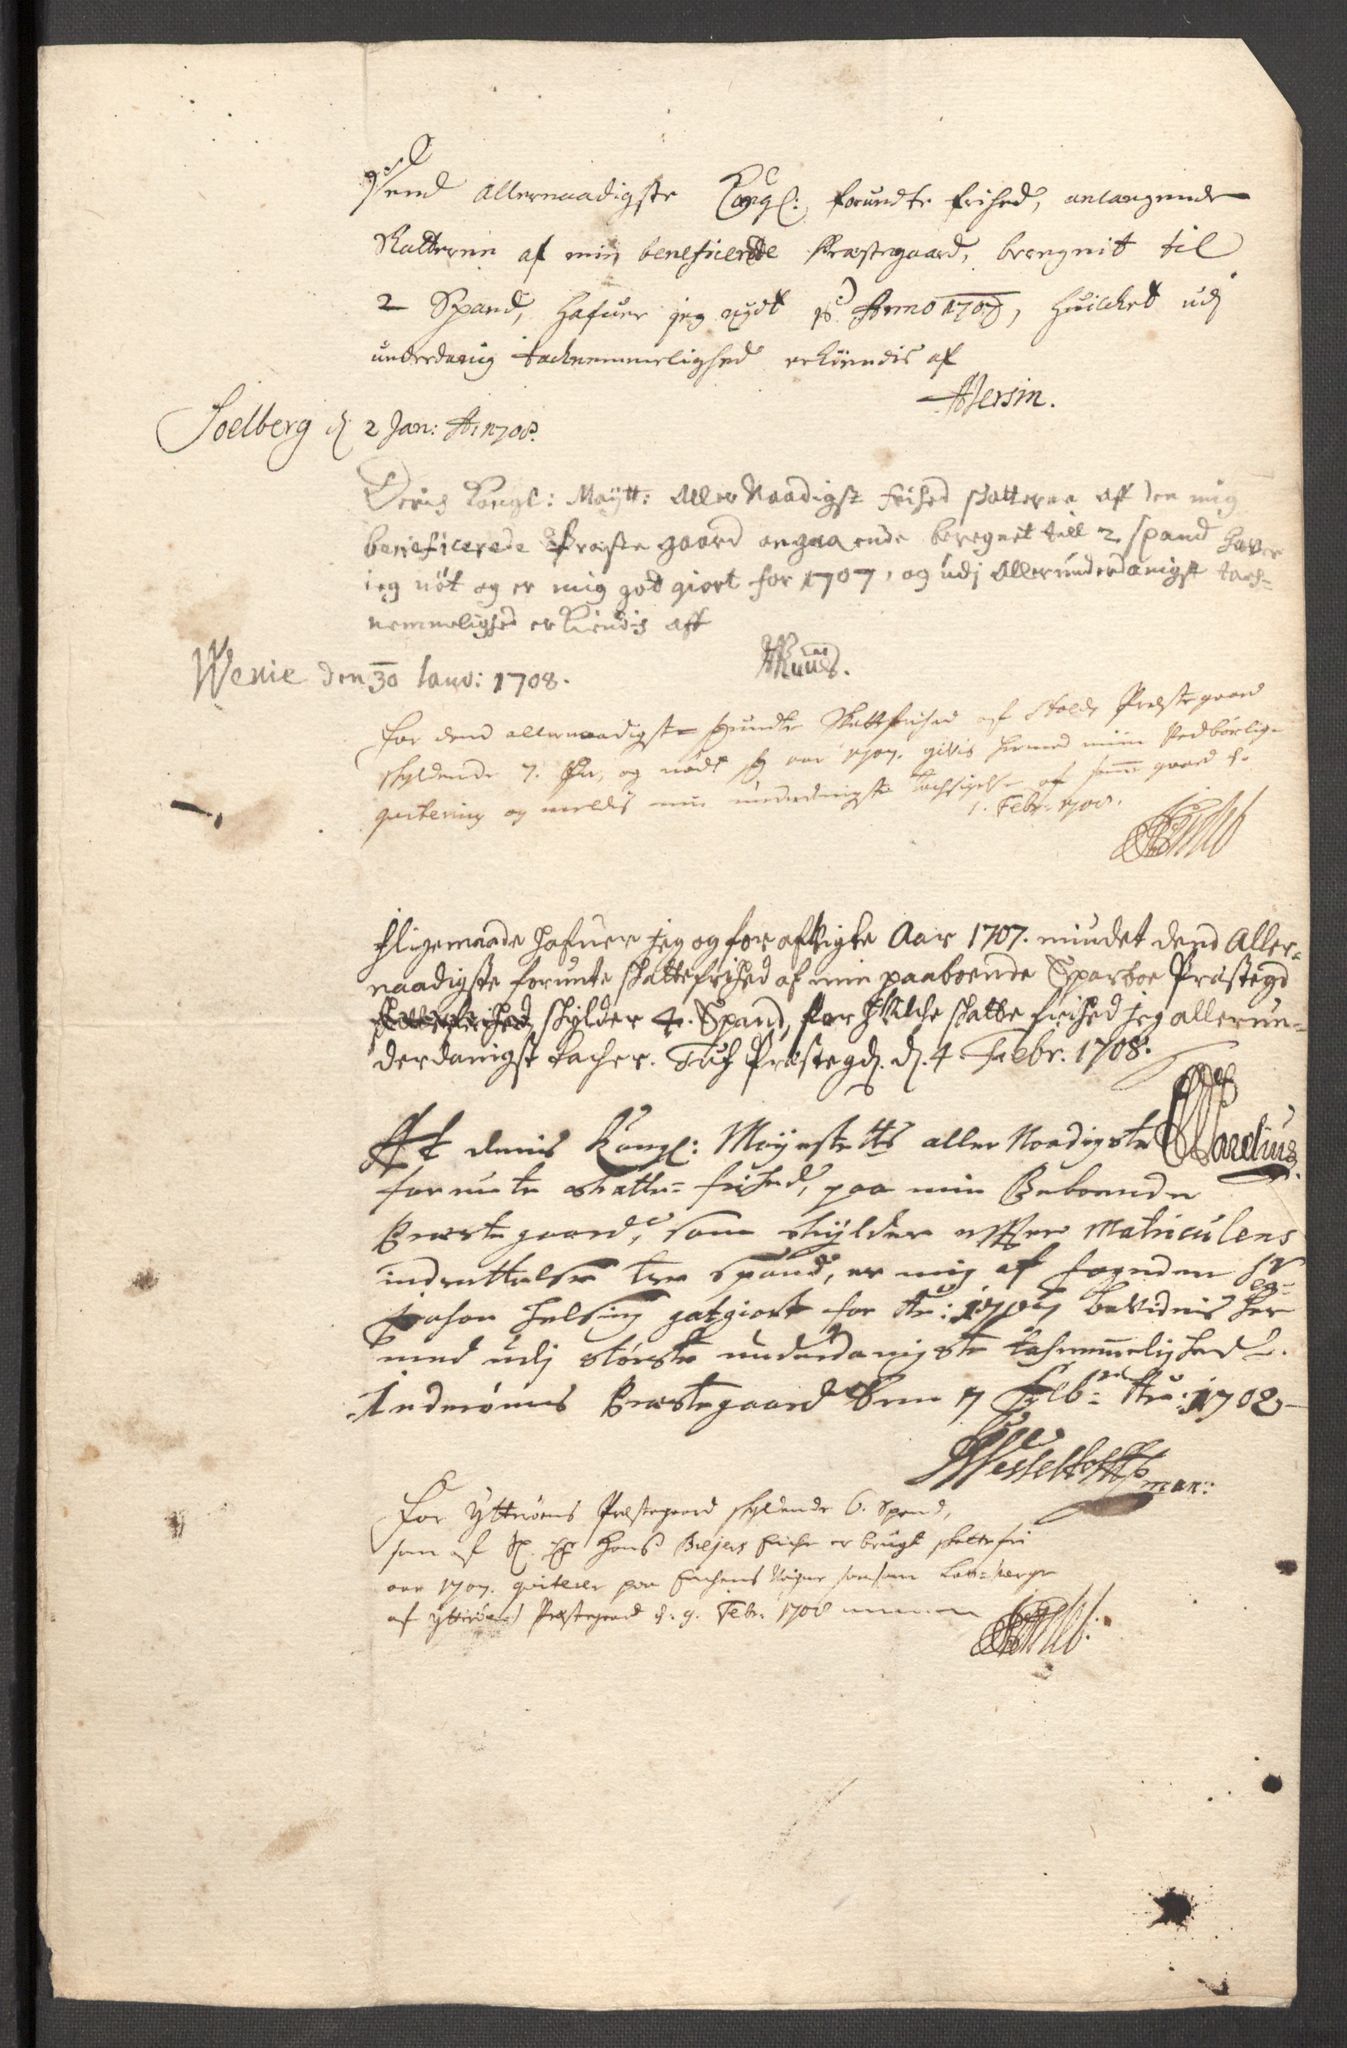 Dend allernaadigste Kongl: forundte frihed, anlangende
Skatterne af min beneficerede Præstegaard, beregnit til
2 Spand, hafuer jeg nydt p. Anno 1707, huilchet udj
underdanig tachnemmelighed erkiendis af
Soelberg d 2 Jan: Ao 1708.
Deris Kongl: Maÿtt: Aller Naadigst frihed skatterne aff den mig
beneficerede Præste gaard angaaende beregnet till 2 spand haver
ieg nöt og er mig got giort for 1707, og udj Allerunderdanigst tach-
nemmelighed erkiendis aff
Werie den 30 Janv: 1708.
For dend allernaadigste forundte Skattefrihed af Præstegaard
skyldende 7. og nødt aar 1707. givis hermed min Pedbörlige
qvitering og meldis min underdanigste tachsigelse af gaard d.
1. Febr: 1708.
Jligemaade hafuer jeg og for afvigte Aar 1707. niudet dend Aller-
naadigste forunte skattefrihed af min paaboende Sparboe Præstegd
skylder 4. Spand, for hvilche skatte frihed jeg allerun-
derdanigst tacher. Tuf Præstegd. d. 4. Febr. 1708.
At denis Kongl: Mayestetts aller Naadigste
forunte skatte-frihed, paa min Beboende
Præstegaard, som skylder effter Matriculens
indrettelse tre spand, er mig af fogden Sr
for Ao: 1707 bevidnis her
med udj største underdanigste tachnemmelighed.
Inderøens Præstegaard den 7 Feb: Ao: 1708
For Ytterøens Præstegaard skyldende 6. Spand,
som af Sl. Hr Hans Bejers Enche er brugt skattefri
aar 1707. qviterer paa Enchens Vegne saasom Lau-verge
af Ytterøens Præstegaard d. 9. Febr: 1708